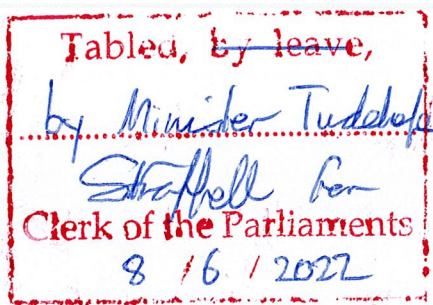 Tabled, by leave,
by Minister Tudehope
for
Clerk of the Parliaments
8 / 6 / 2022